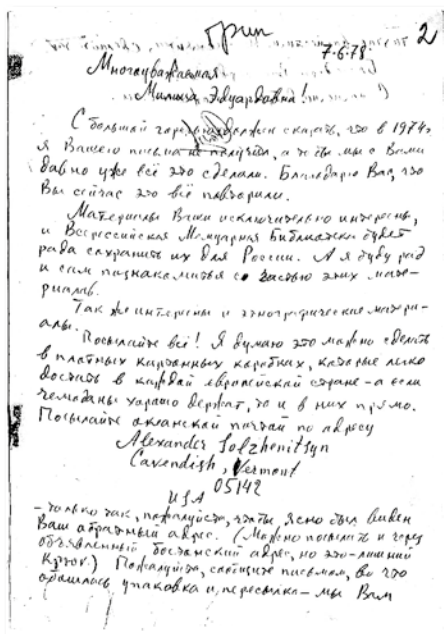 грип
2
7.6.78
Многоуважаемая
Милица Эдуардовна!
С большой должен сказать, что в 1974 г
я Вашего письма не получил, а то бы мы с Вами
давно уже всё это сделали. Благодарю Вас, что
Вы сейчас это всё повторили.
Материалы Ваши исключительно интересны,
и Всероссийская Мемуарная Библиотека будет
рада сохранить их для России. А я буду рад
и сам познакомиться с частью этих мате-
риалов.
Так же интересны и этнографические матери-
алы.
Посылайте всё! Я думаю это можно сделать
в плотных картонных коробках, которые легко
достать в каждой европейской стране – а если
чемоданы хорошо держат, то и в них прямо.
Посылайте океанской почтой по адресу
Alexander Solzhenitsyn
Cavendish, Vermont
05142
USA
– только так, пожалуйста, чтобы ясно был виден
Ваш обратный адрес. (Можно посылать и через
объявленный бостонский адрес, но это – лишний
крюк.) Пожалуйста, сообщите письмом, во что
обошлась упаковка и пересылка – мы Вам